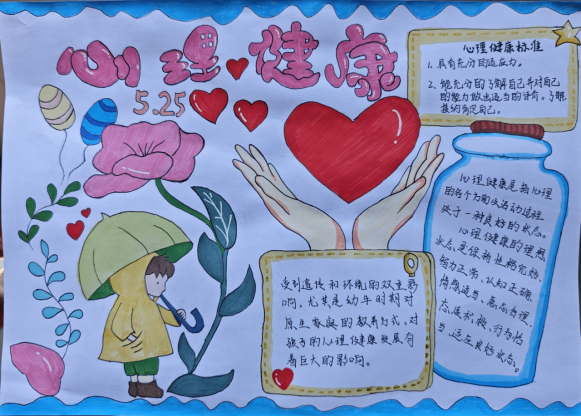 心理健康
5.25
心理健康标准
1、具有充分的适应力。
2、能充分的了解自己并对自己
的能力做出适当的评价。了解、
接纳肯定自己。
心理健康是指心理
的各个方面及活动过程
处于一种良好的状态。
心理健康的理想
状态是保持性格完好、
智力正常、认知正确、
情感适当、意志合理、
态度积极、行为恰
当、适应良好状态。
受到遗传和环境的双重影
响,尤其是幼年时期对
原生家庭的教养方式,对
孩子的心理健康发展有
着巨大的影响。